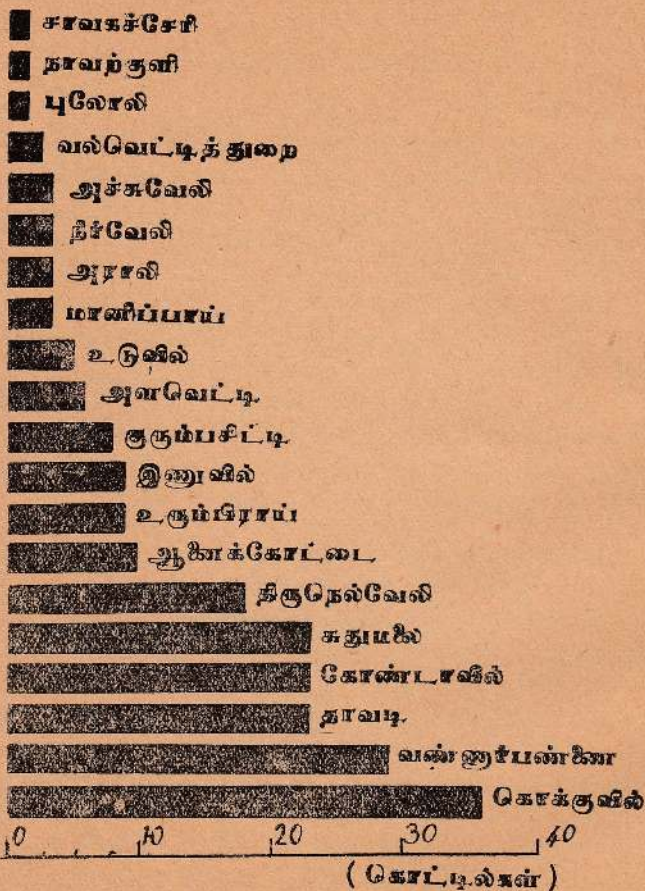 சாவகச்சேரி
நாவற்குளி
புலோலி
வல்வெட்டித்துறை
அச்சுவேலி
நீர்வேலி
அராலி
மானிப்பாய்
உடுவில்
அளவெட்டி
குரும்பசிட்டி
இணுவில்
உரும்பிராய்
ஆனைக்கோட்டை
திருநெல்வேலி
சுதுமலை
கோண்டாவில்
தாவடி
வண்ணார்பண்ணை
கொக்குவில்
0 10 20 30 40
(கொட்டில்கள்)